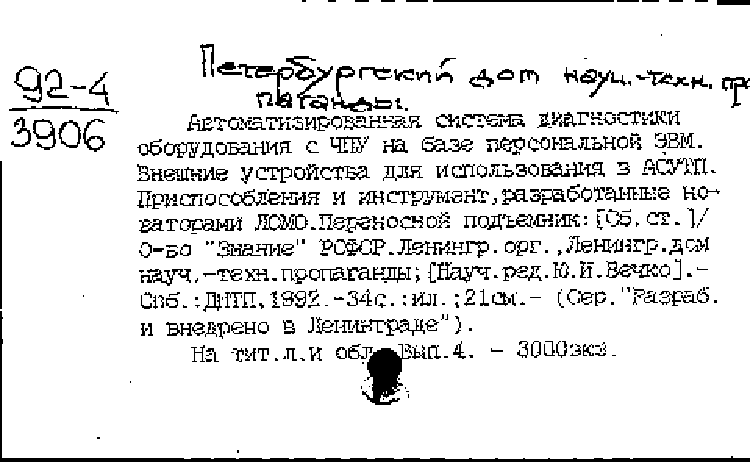 92-4
3906
Петербургский дом науч.-техн. про
паганды.
Автоматизированная система диагностики
оборудования с ЧПУ на базе персональной ЭВМ.
Внешние устройства для использования в АСУТП.
Приспособления и инструмент,разработанные но-
ваторами ЛОМО.Переносной подъемник:[Сб.ст.]/
О-во "Знание" РСФСР.Ленингр.орг.,Ленингр.дом
науч.-техн.пропаганды;[Науч.ред.Ю.И.Вечко].-
Спб.:ДНТП,1992.-34с.:ил.;21см.- (Сер."Разраб.
и внедрено в Ленинграде").
На тит.л.и обл. Вып.4. - 3000экз.